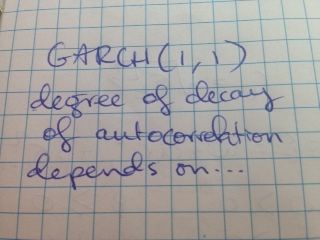 GARCH(1,1)
degree of decay
of autocorrelation
depends on...